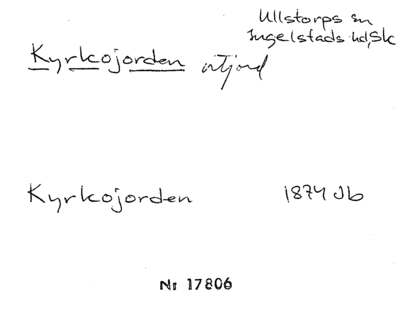 Ullstorps sn
Ingelstads hd, Sk
Kyrkojorden utjord
Kyrkojorden 1874 Jb
Nr 17806